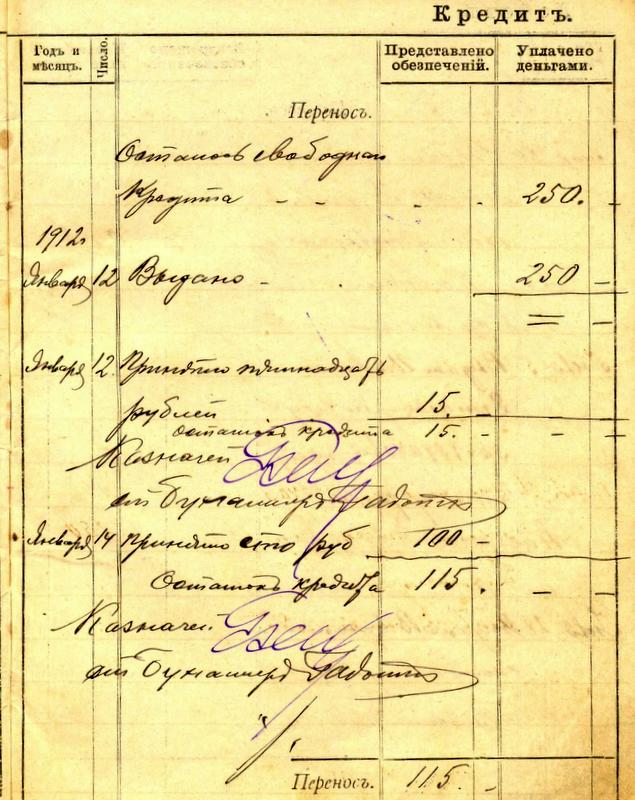 Кредитъ.
Годъ и мѣсяцъ.
Число.
Представлено обезпеченій.
Уплачено деньгами.
Переносъ.
Осталось свободнаго
Кредита - - . - 250. -
1912г
Января 12 Выдано - 250 -
Января 12 Принято пятнадцать
рублей 15. -
Остатокъ кредита 15. - - -
Казначей
Бухгалтеръ
Января 14 Принято сто руб 100 -
Остатокъ кредита 115. - -
Казначей
Бухгалтеръ
Переносъ. 115. -